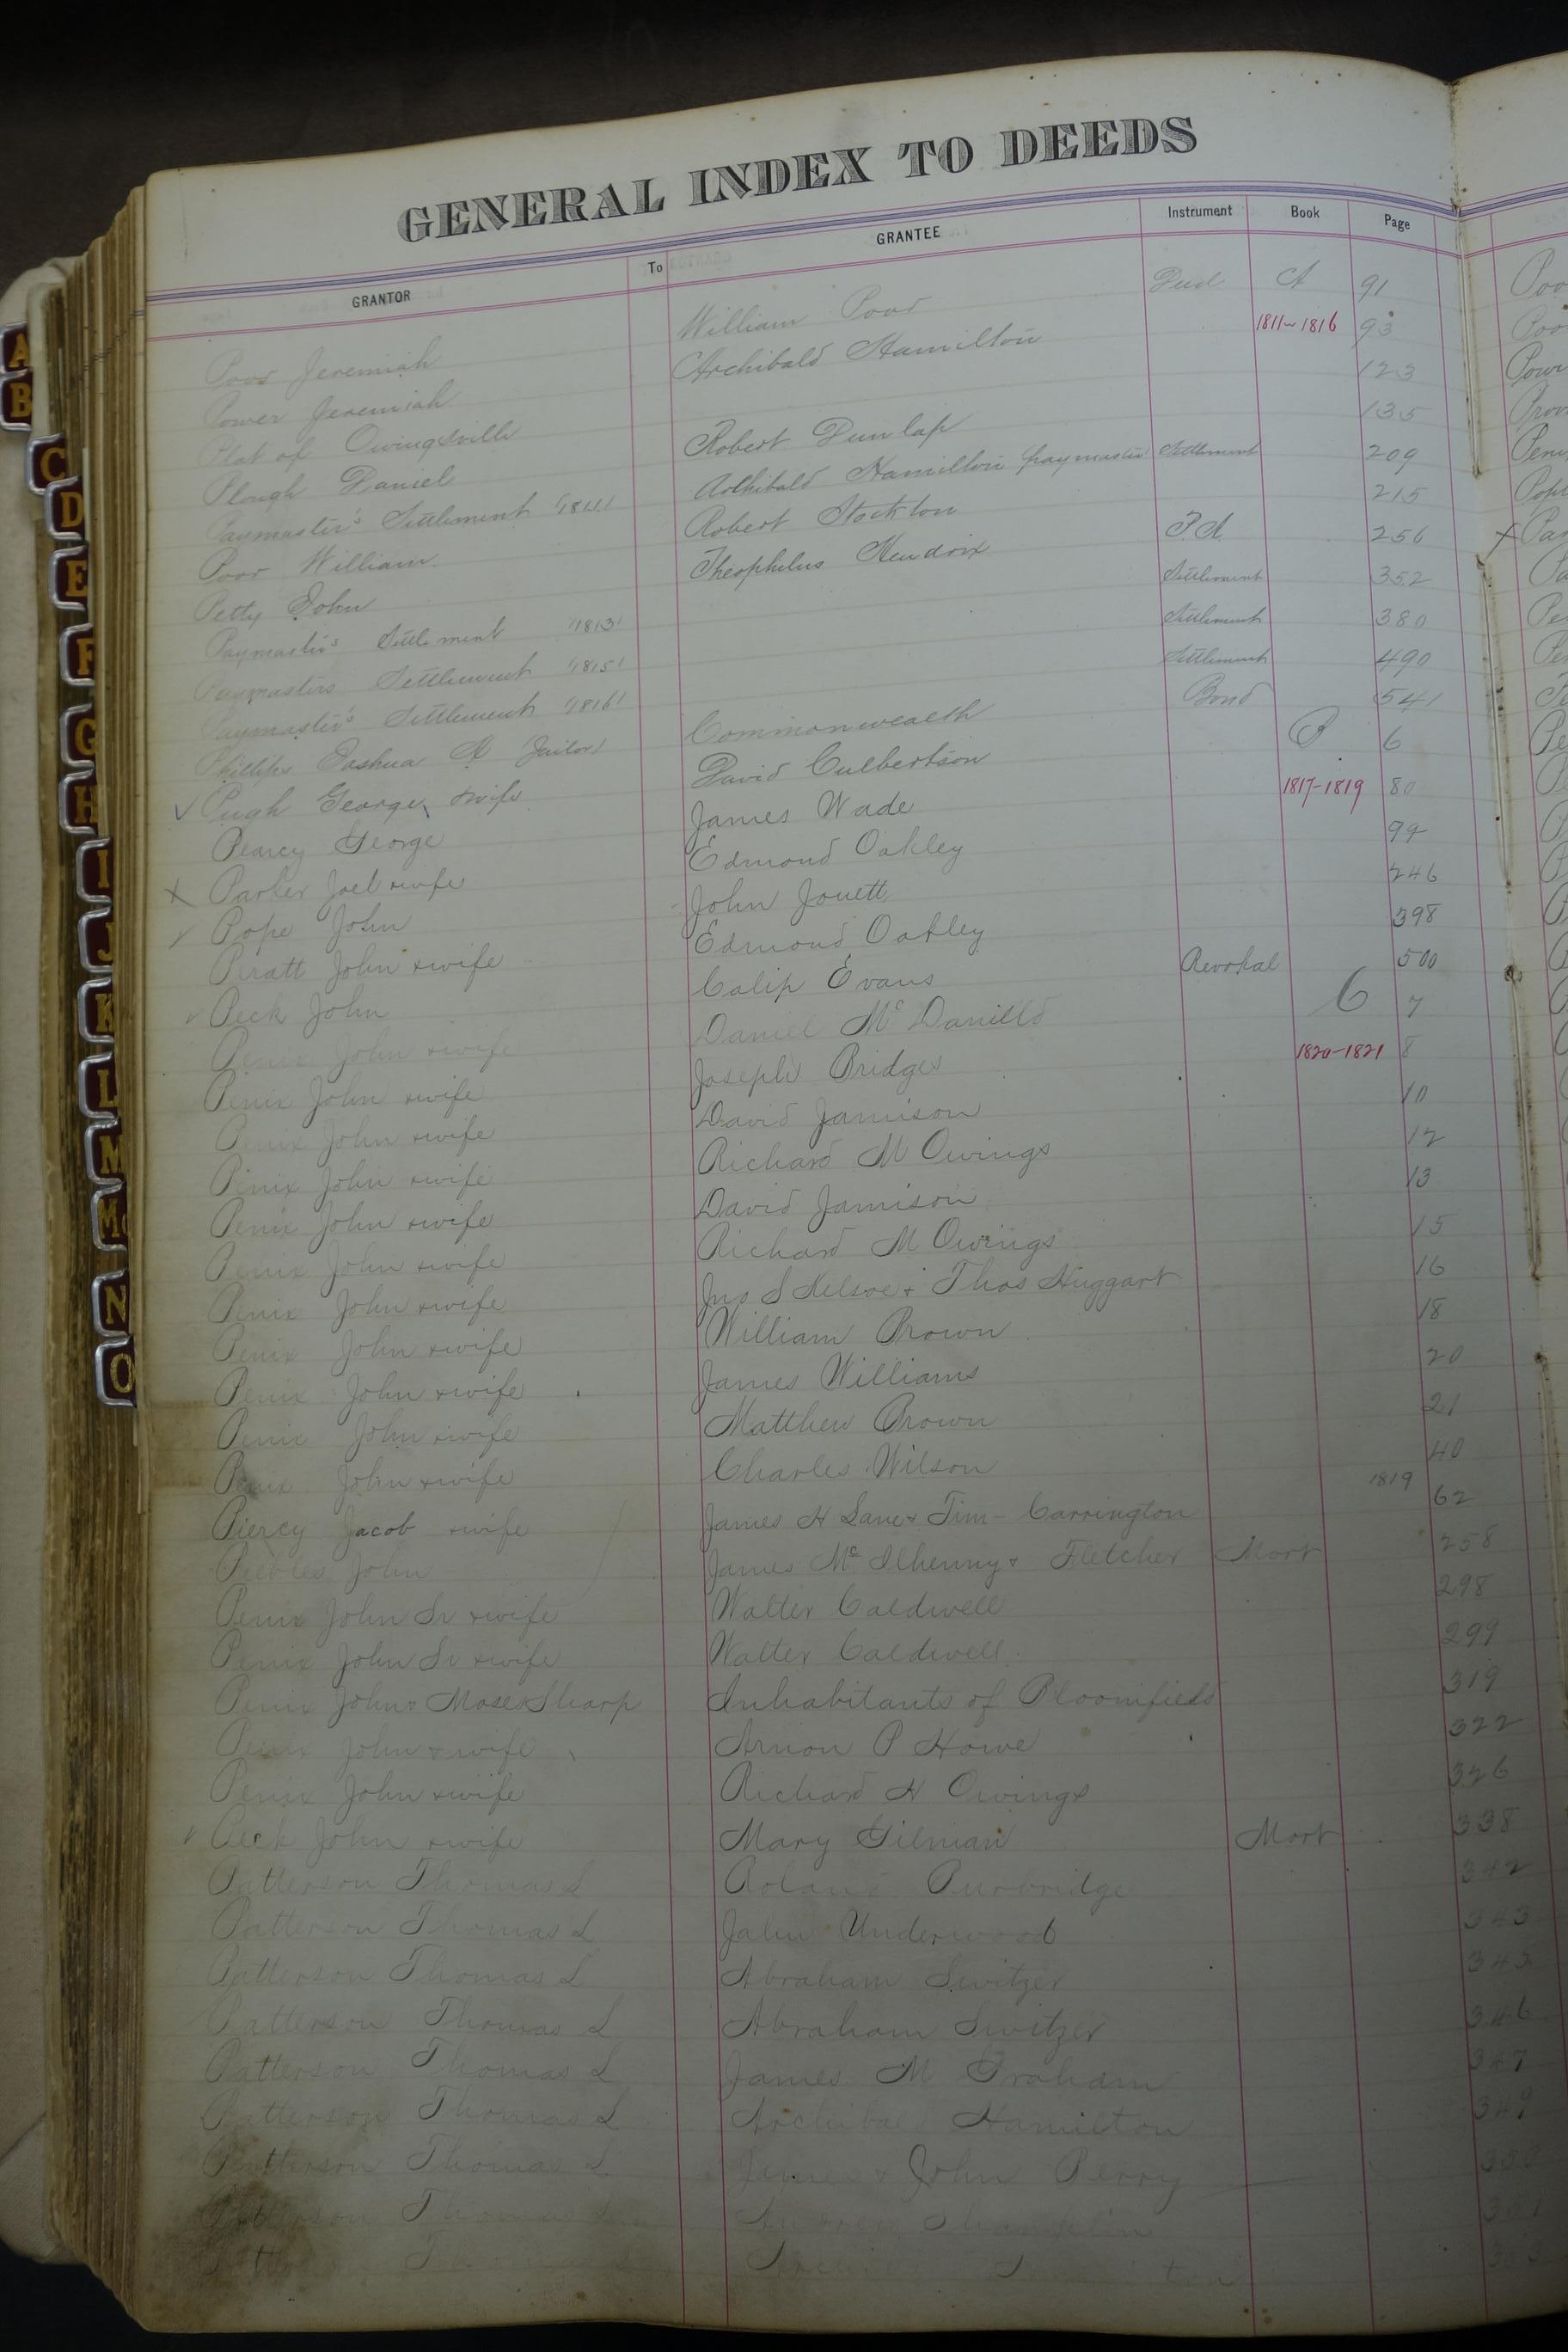 GENERAL INDEX TO DEEDS
GRANTOR To GRANTEE Instrument Book Page
Poor Jeremiah William Poor Deed A 91
Power Jeremiah Archibald Hamilton 1811-1816 93
Plat of Owingsville 123
Plough Daniel Robert Dunlap 135
Paymaster's Settlement Archibald Hamilton paymaster Settlement 209
Poor William Robert Stockton 215
Petty John Theophilus Hendrix P.A. 256
Paymaster's Settlement "1813" Settlement 352
Paymasters Settlement "1815" Settlement 380
Paymaster's Settlement "1816" Settlement 490
Phillips Joshua A (Jailor) Commonwealth Bond 541
✓ Pugh George & wife David Culbertson B 6
Pearcy George James Wade 1817-1819 80
X Parker Joel & wife Edmond Oakley 99
✓ Pope John John Jouett 246
Piratt John & wife Edmond Oakley 398
✓ Peck John Calip Evans Revokal 500
Penix John & wife Daniel McDanilld C 7
Penix John & wife Joseph Bridges 1820-1821 8
Penix John & wife David Jamison 10
Penix John & wife Richard M Owings 12
Penix John & wife David Jamison 13
Penix John & wife Richard M Owings 15
Penix John & wife Jno S Kelsoe & Thos Huggart 16
Penix John & wife William Brown 18
Penix John & wife James Williams 20
Penix John & wife Matthew Brown 21
Penix John & wife Charles Wilson 40
Piercy Jacob & wife James H Lane & Tim- Carrington 1819 62
Peebles John James McIlhenny & Fletcher Mort 258
Penix John Sr & wife Walter Caldwell 298
Penix John Sr & wife Walter Caldwell 299
Penix John & Moses Sharp Inhabitants of Bloomfield 319
Penix John & wife Arnon P Howe 322
Penix John & wife Richard H Owings 326
✓ Peck John & wife Mary Gilman Mort 338
Patterson Thomas L Roland Burbridge 342
Patterson Thomas L John Underwood 343
Patterson Thomas L Abraham Switzer 345
Patterson Thomas L Abraham Switzer 346
Patterson Thomas L James M Graham 347
Patterson Thomas L Archibald Hamilton 349
Patterson Thomas L James & John Berry
Patterson Thomas L
A
B
C
D
E
F
G
H
I
J
K
L
M
Mc
N
O